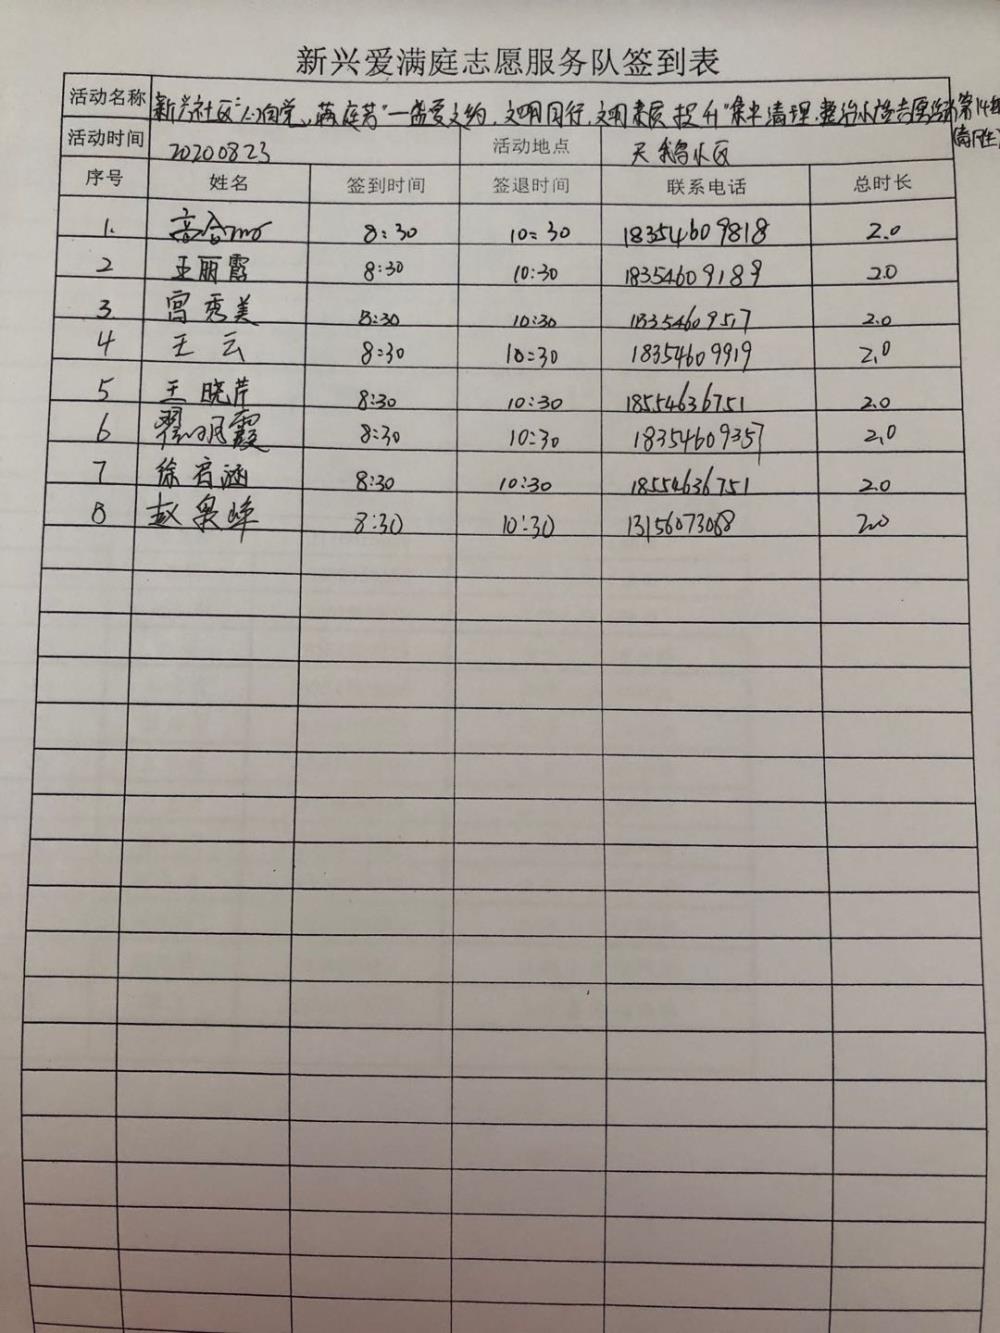 新兴爱满庭志愿服务队签到表
活动名称 新兴社区"心向党、满庭芳"一盛夏之约,文明同行,文明素质提升"集中清理,整治小
活动时间 20200823 活动地点 天鹅小区
序号 姓名 签到时间 签退时间 联系电话 总时长
1. 8:30 10:30 18354609818 2.0
2 王丽霞 8:30 10:30 18354609189 2.0
3 宫秀美 8:30 10:30 2.0
4 王云 8:30 10:30 18354609919 2.0
5 王晓芹 8:30 10:30 18554636751 2.0
6 翟明霞 8:30 10:30 18354609357 2.0
7 徐君涵 8:30 10:30 18554636751 2.0
8 赵 8:30 10:30 13156073068 2.0